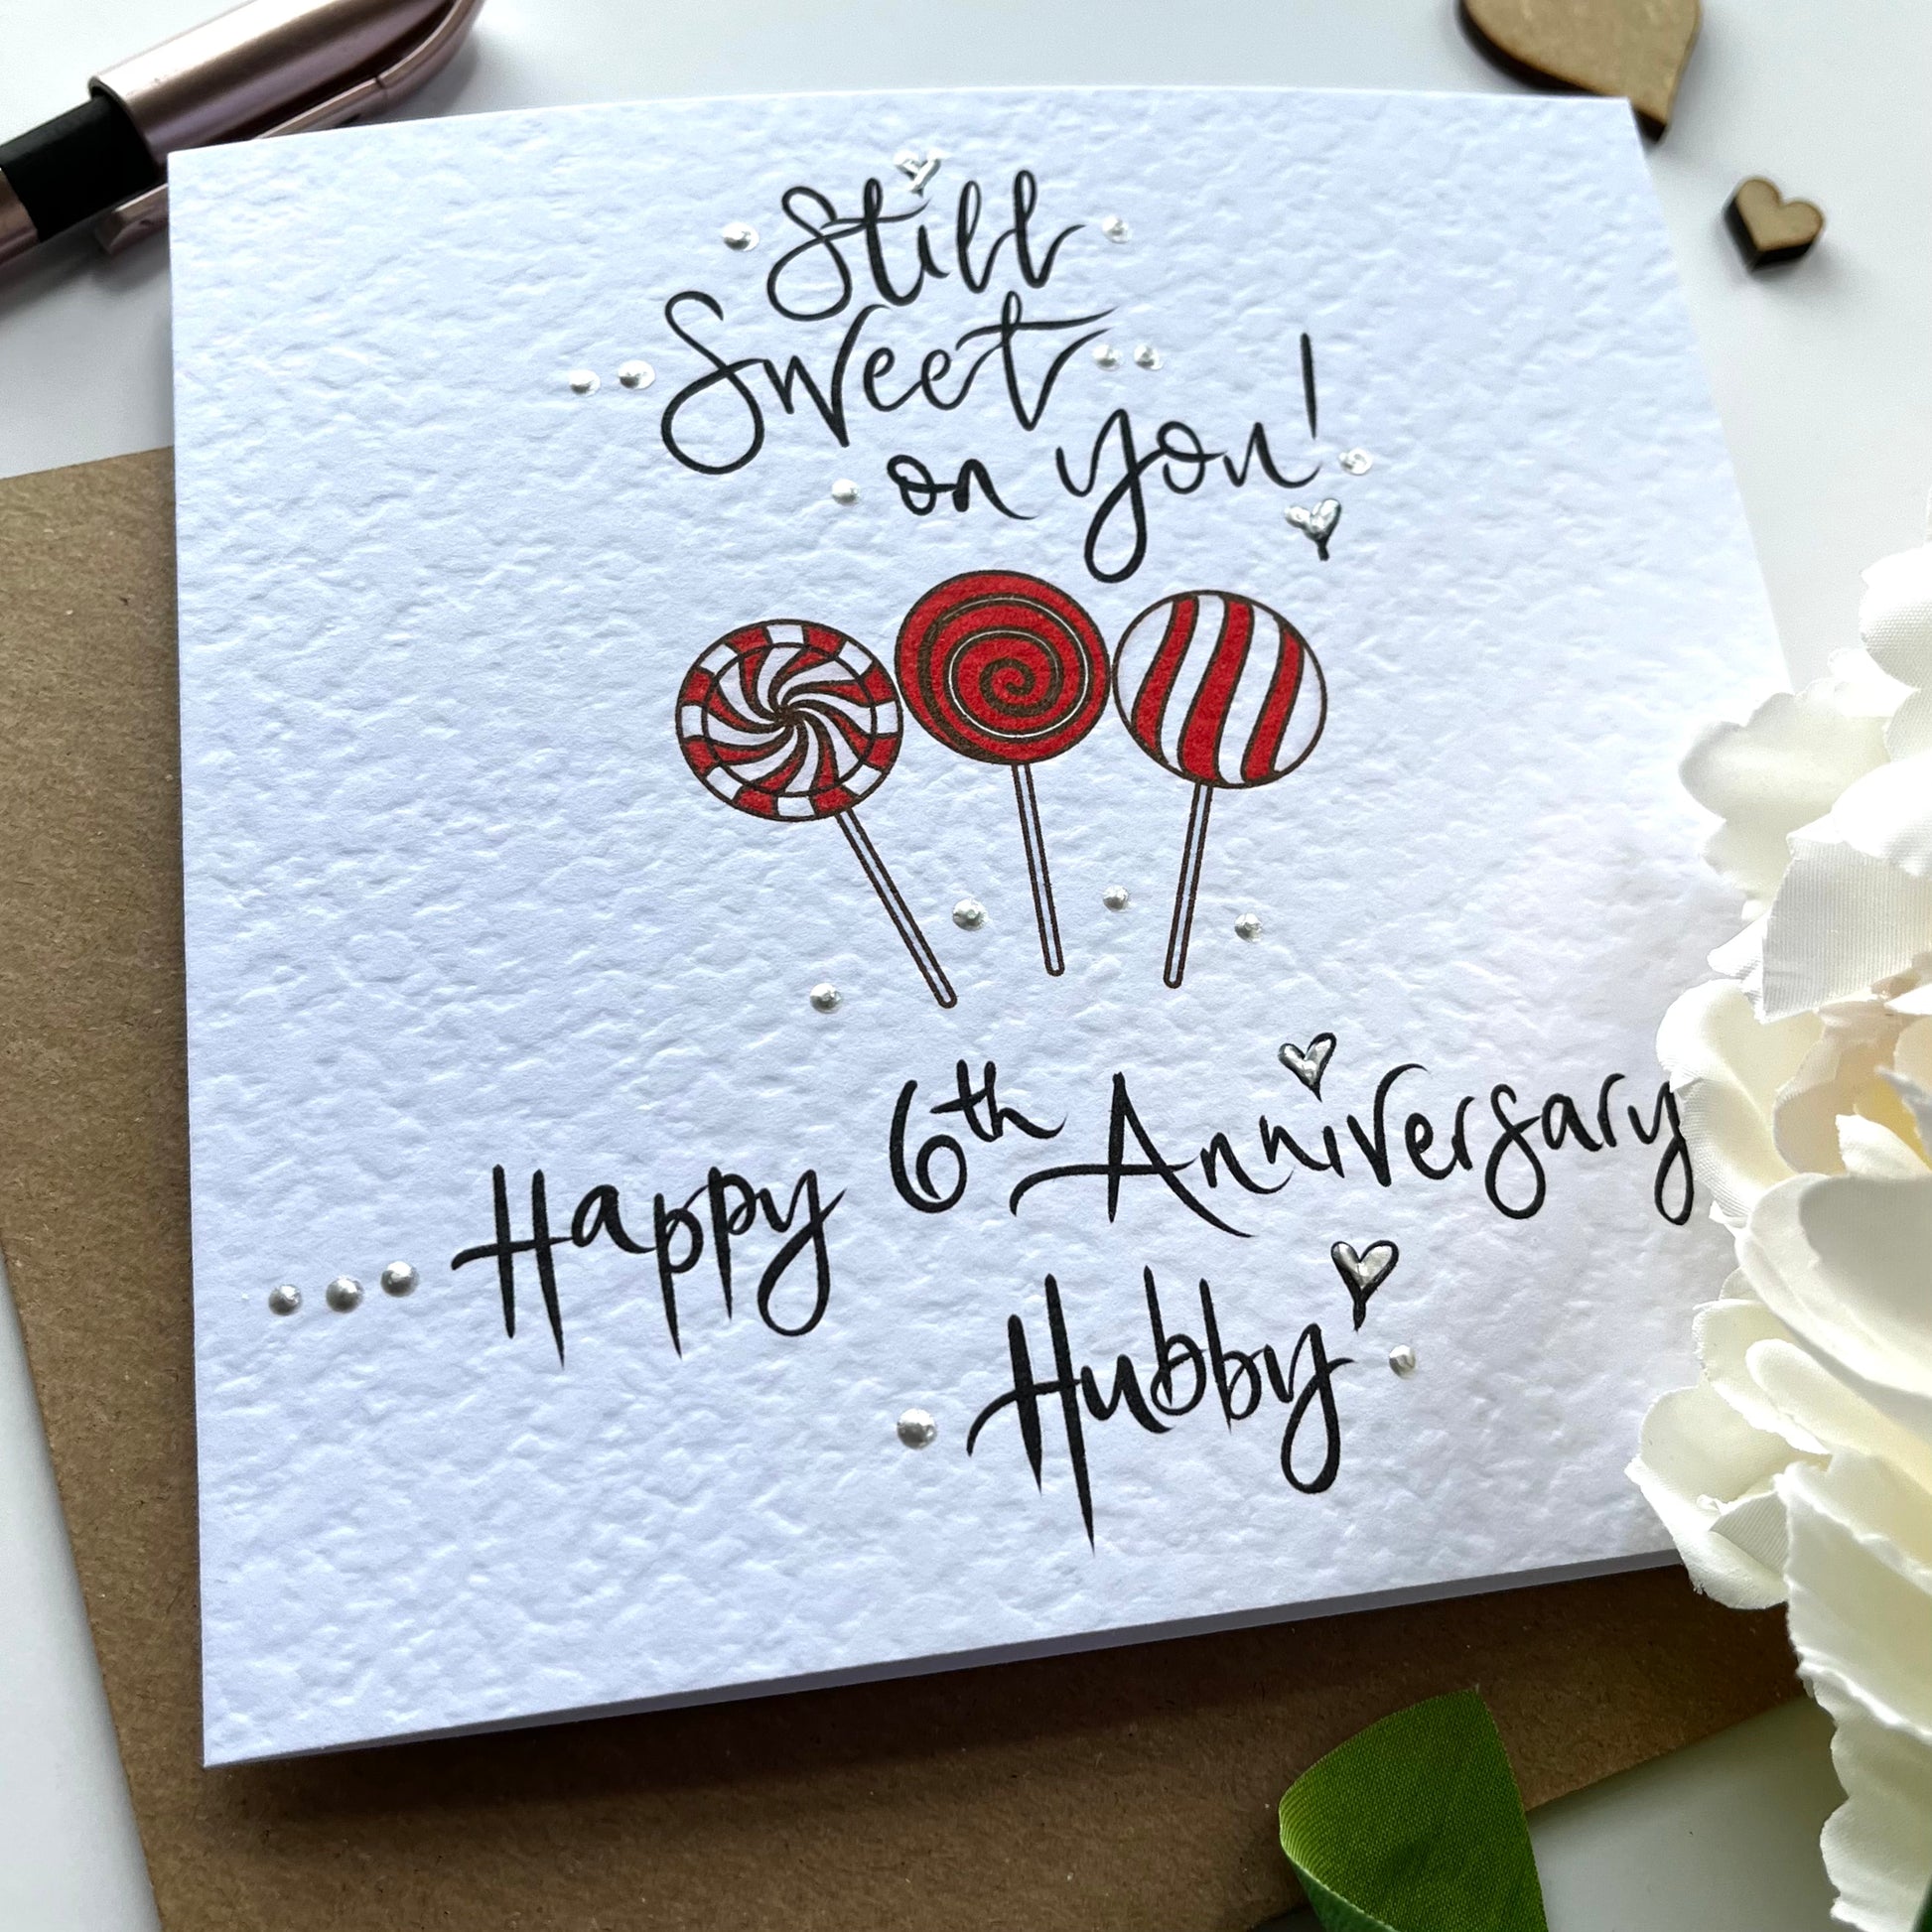 Still
Sweet
on you!
Happy 6th Anniversary
Hubby